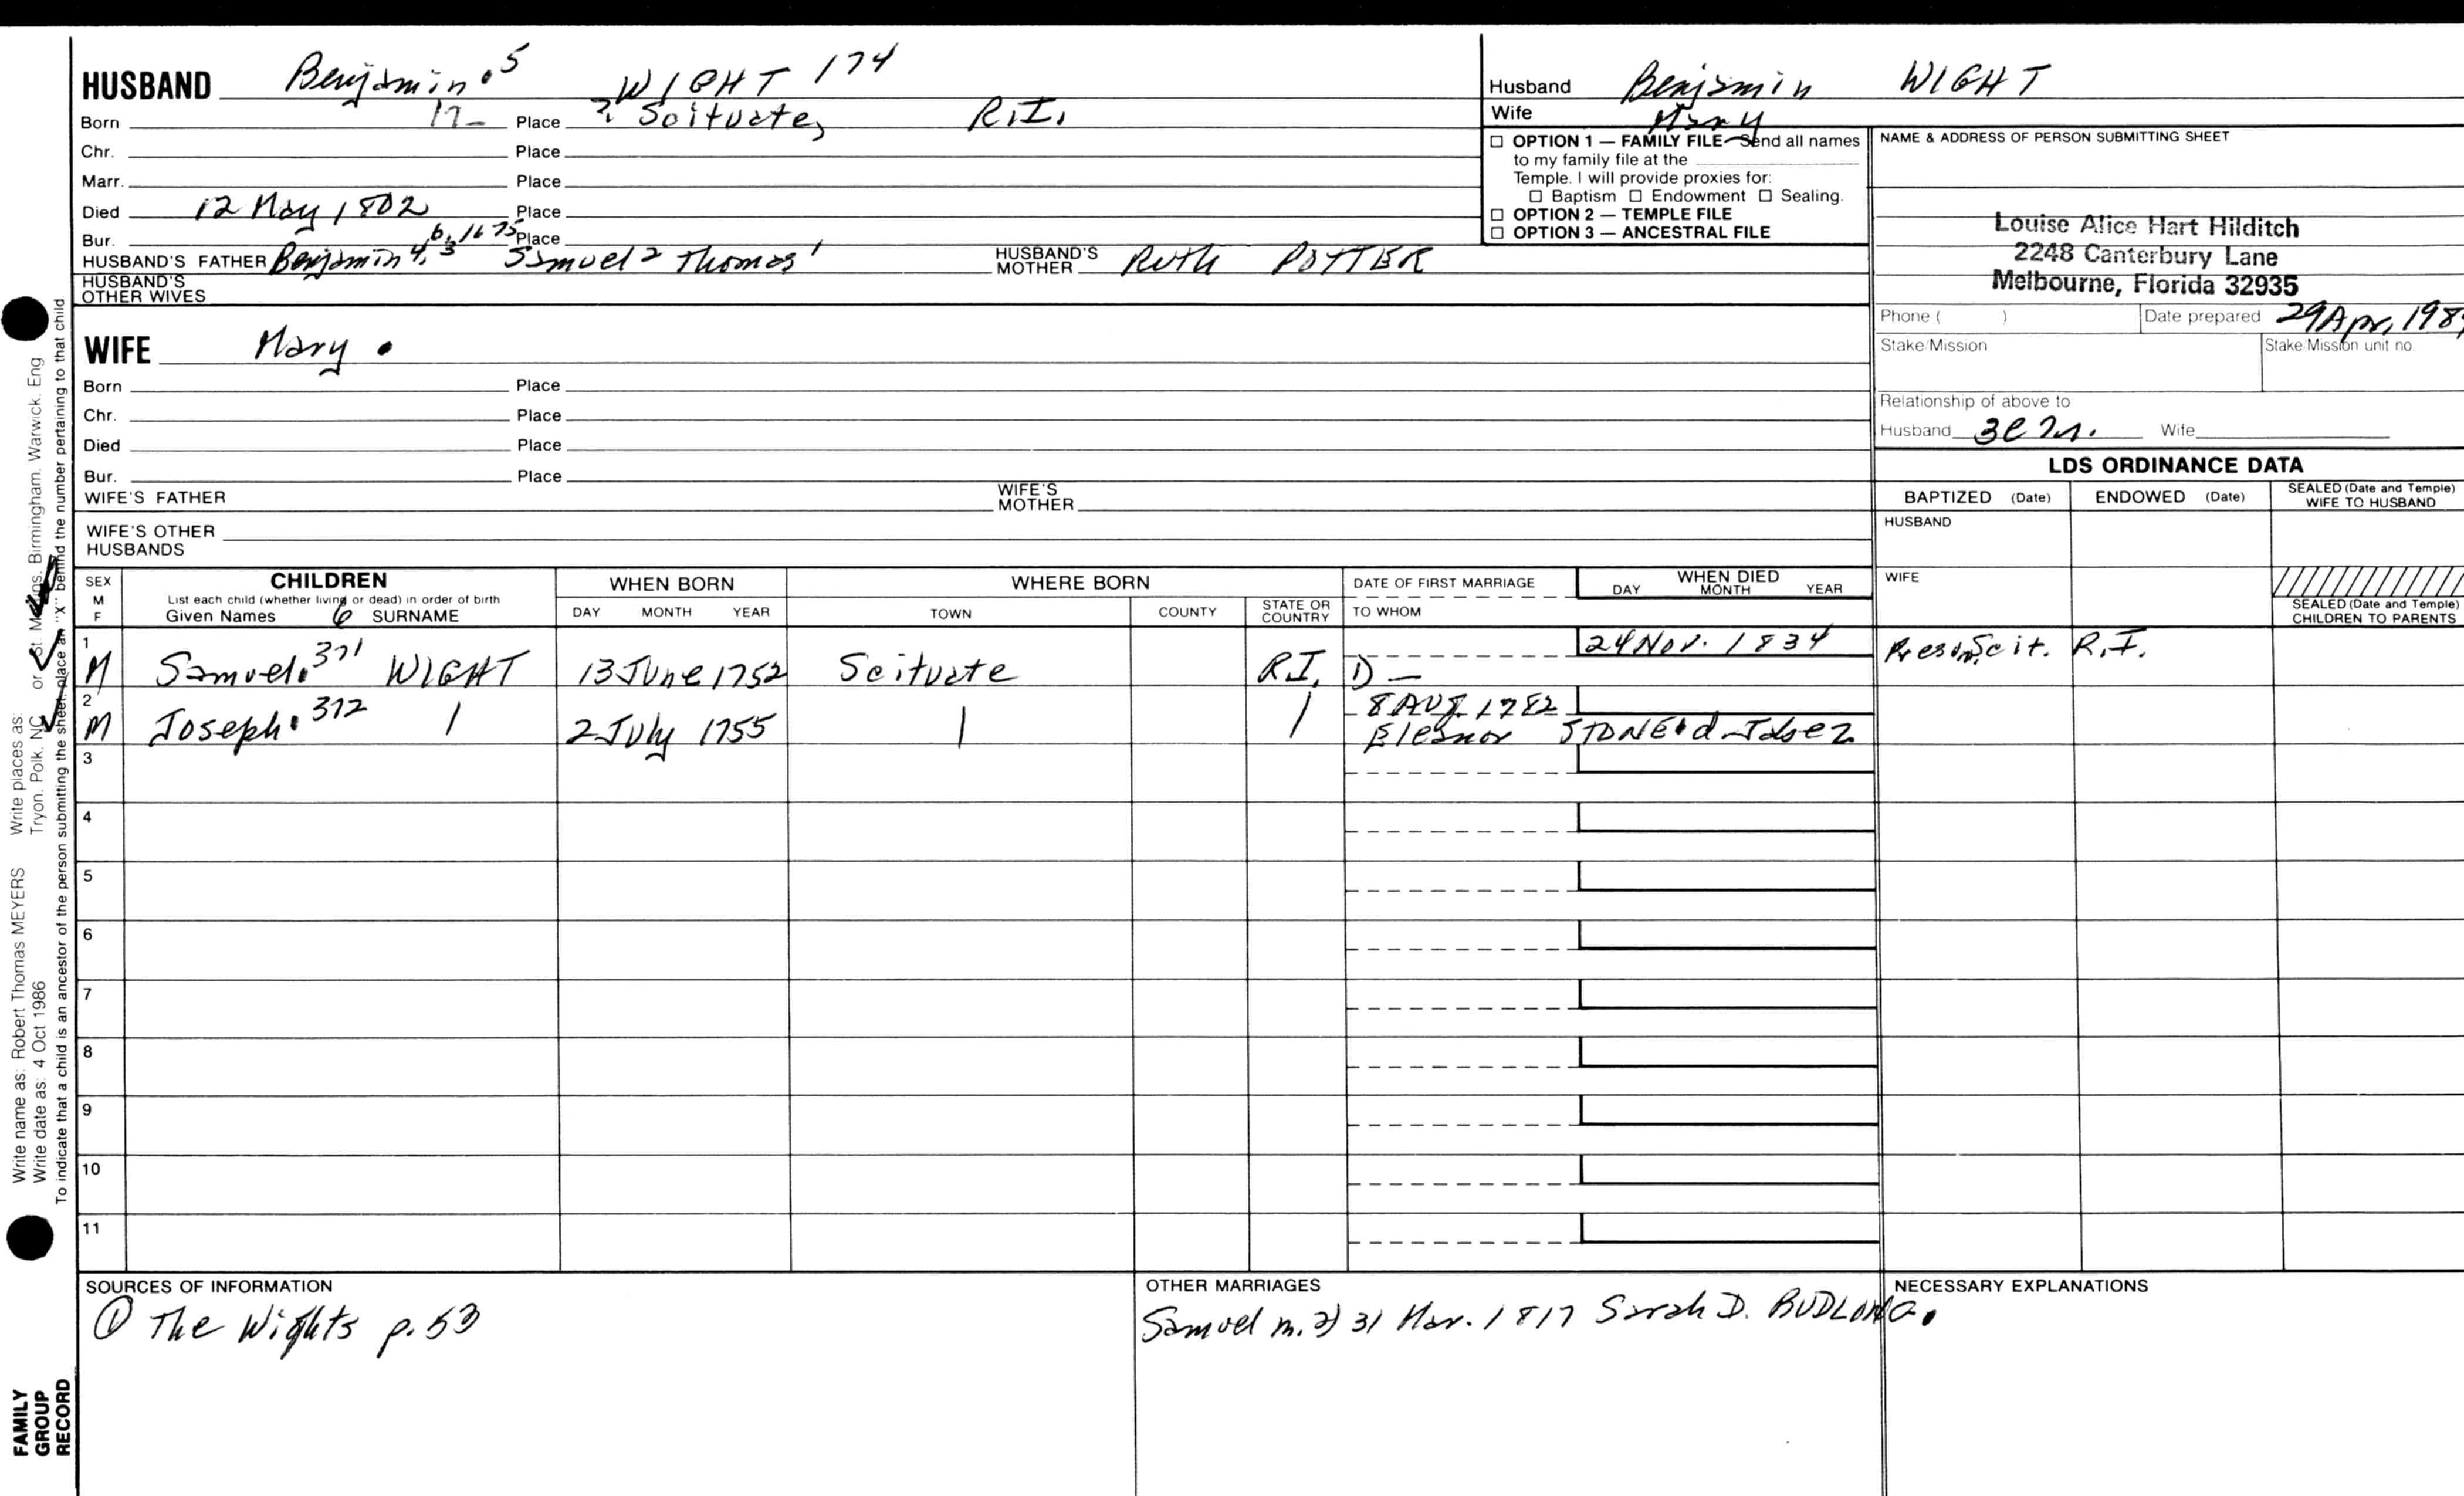 HUSBAND Benjamin.5 WIGHT 174
Born 17- Place ? Scituate, R.I.
Chr. Place
Marr. Place
Died 12 May 1802 Place
Bur. Place
b. 1675
HUSBAND'S FATHER Benjamin 4,3 Samuel 2 Thomas 1 HUSBAND'S MOTHER Ruth POTTER
HUSBAND'S OTHER WIVES
Husband Benjamin WIGHT
Wife Mary
☐ OPTION 1 — FAMILY FILE — Send all names
to my family file at the
Temple. I will provide proxies for:
☐ Baptism ☐ Endowment ☐ Sealing.
☐ OPTION 2 — TEMPLE FILE
☐ OPTION 3 — ANCESTRAL FILE
NAME & ADDRESS OF PERSON SUBMITTING SHEET
Louise Alice Hart Hilditch
2248 Canterbury Lane
Melbourne, Florida 32935
Phone ( ) Date prepared 29 Apr, 198
Stake/Mission Stake/Mission unit no.
Relationship of above to
Husband Wife
WIFE Mary .
Born Place
Chr. Place
Died Place
Bur. Place
WIFE'S FATHER WIFE'S MOTHER
WIFE'S OTHER HUSBANDS
LDS ORDINANCE DATA
BAPTIZED (Date) ENDOWED (Date) SEALED (Date and Temple) WIFE TO HUSBAND
HUSBAND
WIFE
SEALED (Date and Temple) CHILDREN TO PARENTS
SEX M F
CHILDREN
List each child (whether living or dead) in order of birth
Given Names 6 SURNAME
WHEN BORN
DAY MONTH YEAR
WHERE BORN
TOWN COUNTY STATE OR COUNTRY
DATE OF FIRST MARRIAGE
TO WHOM
WHEN DIED
DAY MONTH YEAR
1 M Samuel.371 WIGHT 13 June 1752 Scituate R.I. 1) — 24 Nov. 1834 Scit. R.I.
2 M Joseph.372 | 2 July 1755 | | 8 Aug. 1782
Eleanor STONE . d-Jabez
3
4
5
6
7
8
9
10
11
SOURCES OF INFORMATION
① The Wights p. 53
OTHER MARRIAGES
Samuel m. 2) 31 Mar. 1817 Sarah D. BUDLONG.
NECESSARY EXPLANATIONS
Write name as: Robert Thomas MEYERS Write places as:
Write date as: 4 Oct 1986 Tryon, Polk, NC or St. Birmingham, Warwick, Eng
To indicate that a child is an ancestor of the person submitting the sheet, place an "X" behind the number pertaining to that child
FAMILY
GROUP
RECORD